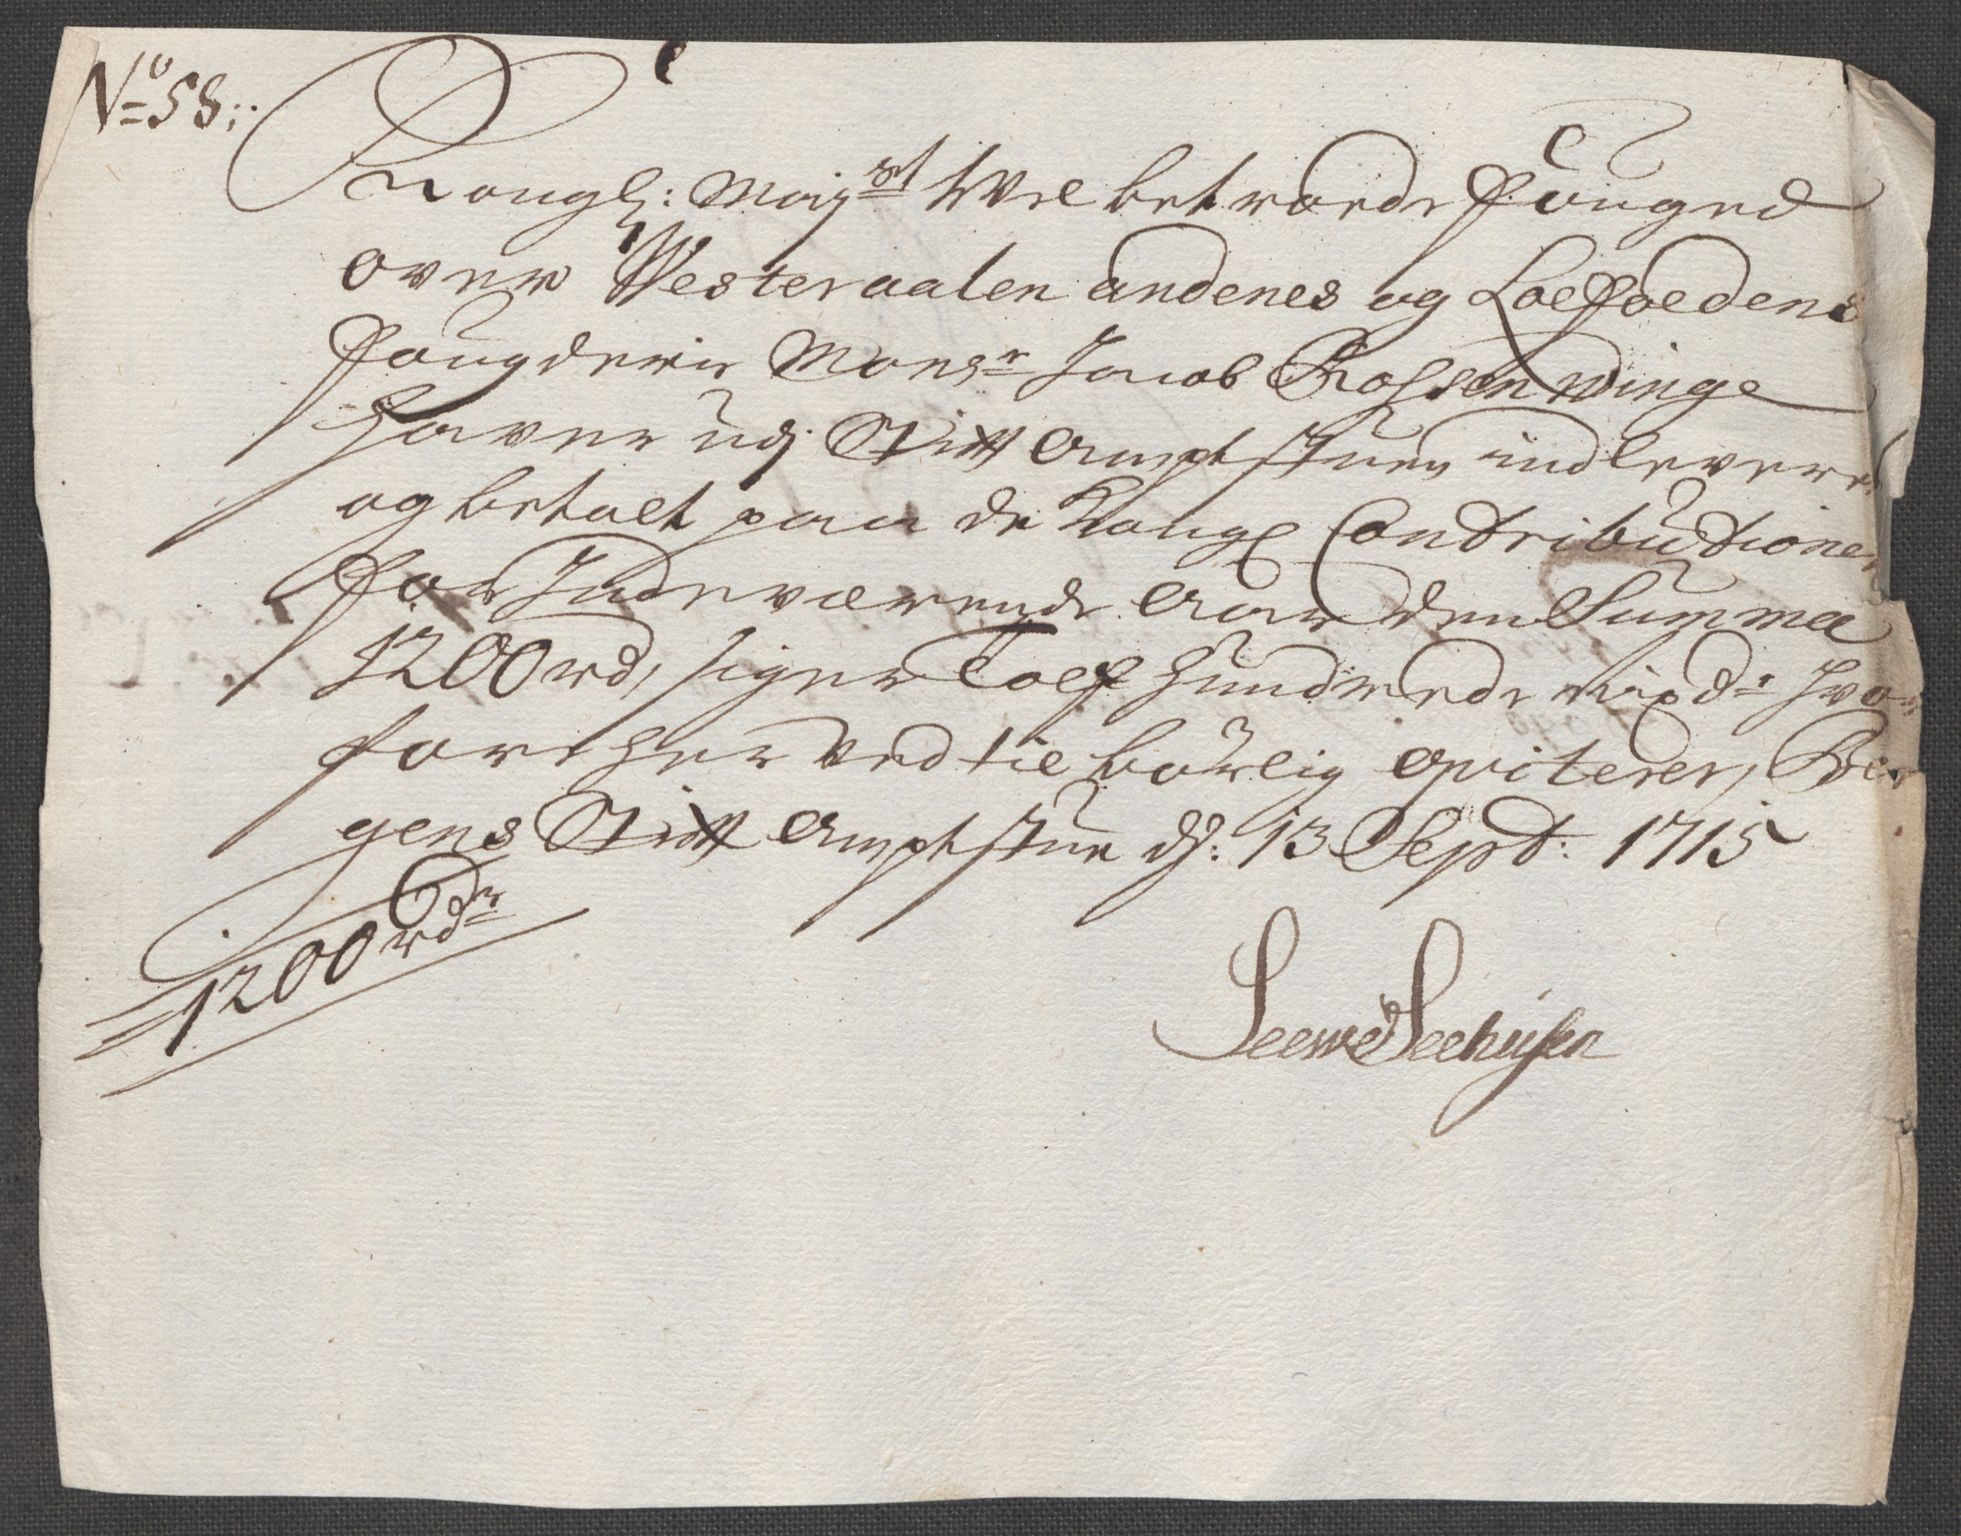 No 58:
Kongl: Maÿst Wel betroede Fouged
over Westeraalen andenes og Loefoedens
fougderie Monsr Jacob Rossenwinge
haver udj Stift Ampt stuen indleveret
og betalt paa de Kongl Contributioner
for Indeværende Aar den Summa
1200 rd, siger Tolf hundrede rixdr hvor
fore hermed til børlig qviterer, Ber
gens Stift Ampt stue dj: 13 Sept: 1715
1200 rdr
Seehusen